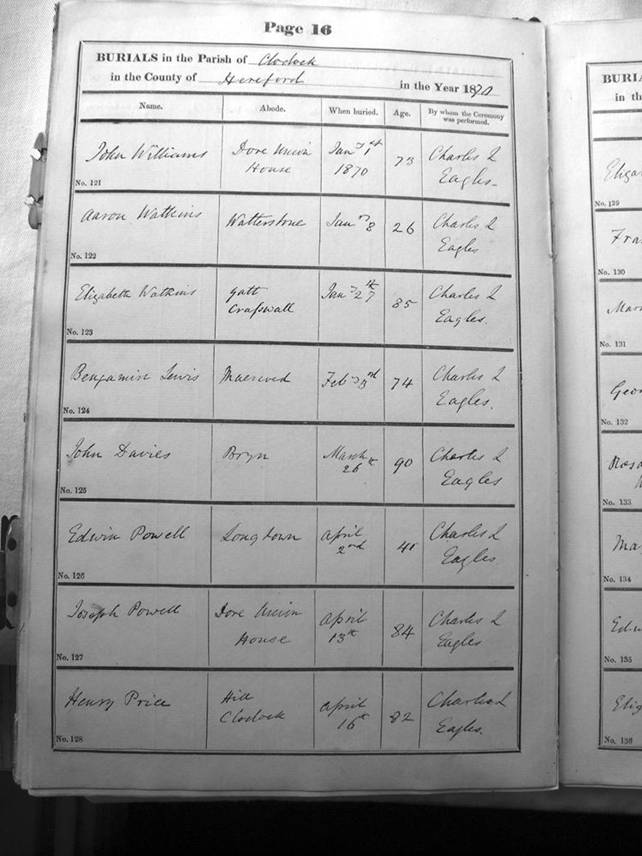 Page 16
BURIALS in the Parish of Clodock
in the County of Hereford in the Year 1870
Name. Abode. When buried. Age. By whom the Ceremony was performed.
John Williams Dore Union House Jany 1st 1870 73 Charles L Eagles
No. 121
Aaron Watkins Walterstone Jany 8 26 Charles L Eagles
No. 122
Elizabeth Watkins Craswall Jany 27th 85 Charles L Eagles.
No. 123
Benjamin Lewis Feby 74 Charles L Eagles.
No. 124
John Davies Bryn March 26th 90 Charles L Eagles
No. 125
Edwin Powell Longtown April 2nd Charles L Eagles
No. 126
Joseph Powell Dore Union House April 13th 84 Charles L Eagles
No. 127
Henry Price Hill Clodock April 16th 82 Charles L Eagles.
No. 128
BURIA
in th
No. 129
Fra
No. 130
No. 131
Geor
No. 132
No. 133
Ma
No. 134
Edw
No. 135
Eliz
No. 136